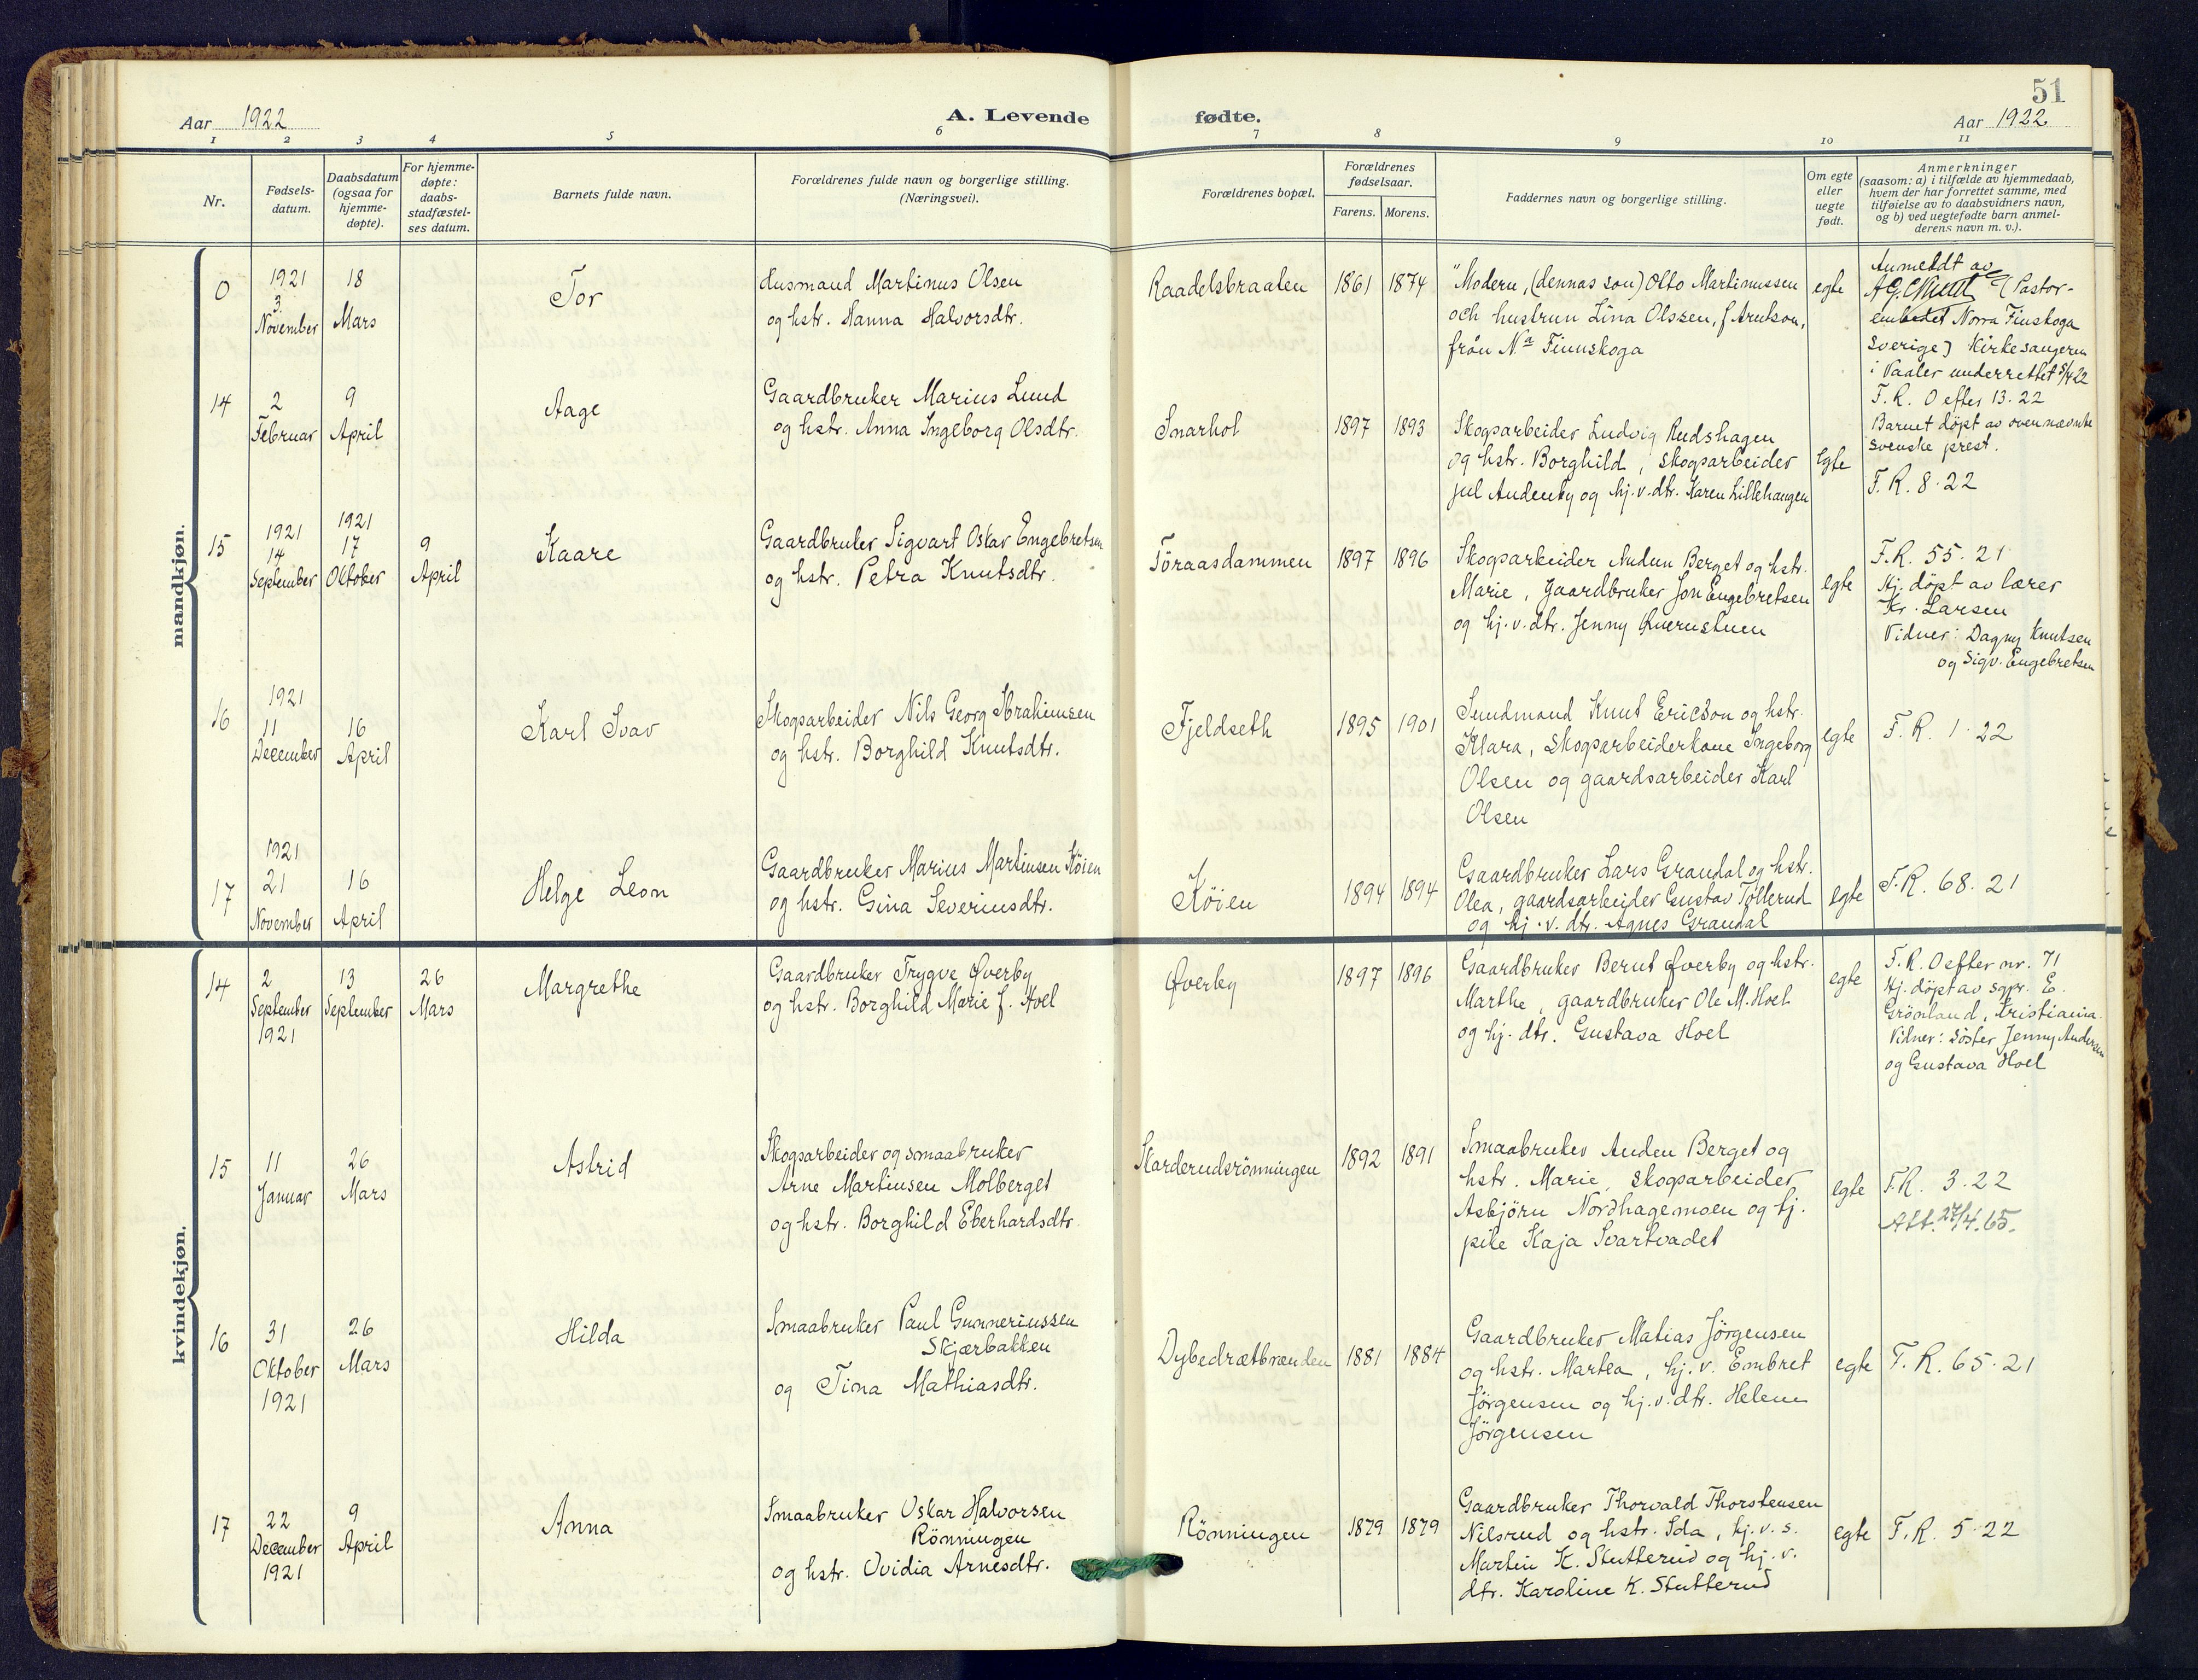 51
Aar 1922
A. Levende
fødte.
Aar 1922
1 2 3 4 5 6 7 8 9 10 11
Nr.
Fødsels-
datum.
Daabsdatum
(ogsaa for
hjemme-
døpte).
For hjemme-
døpte:
daabs-
stadfæstel-
ses datum.
Barnets fulde navn.
Forældrenes fulde navn og borgerlige stilling.
(Næringsvei).
Forældrenes bopæl.
Forældrenes
fødselsaar.
Farens. Morens.
Faddernes navn og borgerlige stilling.
Om egte
eller
uegte
født.
Anmerkninger
(saasom: a) i tilfælde av hjemmedaab,
hvem der har forrettet samme, med
tilføielse av to daabsvidners navn,
og b) ved uegtefødte barn anmel-
derens navn m. v.).
mandkjøn.
0
1921
3.
November
18
Mars
Tor
Husmand Martinus Olsen
og hstr. Hanna Halvorsdtr.
Raadelsbraaten
1861
1874
"Modern, (dennas son) Otto Martinussen
och hustrun Lina Olssen, f Arntson,
från Na Finnskoga
egte
Anmeldt av
(Pastor-
embedet Norra Finskoga
Sverige) Kirkesangeren
i Vaaler underrettet 5/4 22
F. R. 0 efter 13. 22
Barnet döpt av ovennævnte
svenske prest.
14
2
Februar
9
April
Aage
Gaardbruker Marius Lund
og hstr. Anna Ingeborg Olsdtr.
Snarhol
1897
1893
Skogsarbeider Ludvig Rudshagen
og hstr. Borghild, skogsarbeider
Juel Audenby og hj.v.dtr. Karen Lillehaugen
egte
F. R. 8. 22
15
1921
14
September
1921
17
Oktober
9
April
Kaare
Gaardbruker Sigvart Oskar Engebretsen
og hstr. Petra Knutsdtr.
Töraasdammen
1897
1896
Skogsarbeider Audun Berget og hstr.
Marie, gaardbruker Jon Engebretsen
og hj.v.dtr. Jenny Quernstuen
egte
F. R. 55. 21
Hj. döpt av lærer
Kr. Larsen
Vidner: Dagny Knutsen
og Sigv. Engebretsen
16
1921
11
December
16
April
Karl Ivar
Skogsarbeider Nils Georg Abrahimsen
og hstr. Borghild Knutsdtr.
Fjeldseth
1895
1901
Sundmand Knut Ericson og hstr.
Klara, skogsarbeiderkone Ingeborg
Olsen og gaardsarbeider Karl
Olsen
egte
F. R. 1. 22
17
1921
21
November
16
April
Helge Leon
Gaardbruker Marius Martinsen Köien
og hstr. Gina Severinsdtr.
Köien
1894
1894
Gaardbruker Lars Grandal og hstr.
Olea, gaardsarbeider Gustav Tollerud
og hj.v.dtr. Agnes Grandal
egte
F. R. 68. 21
kvindekjøn.
14
2
September
1921
13
September
26
Mars
Margrethe
Gaardbruker Trygve Øverby
og hstr. Borghild Marie f. Hoel
Øverby
1897
1896
Gaardbruker Bernt Øverby og hstr.
Marthe, gaardbruker Ole M. Hoel
og hj. dtr. Gustava Hoel
egte
F. R. 0 efter nr. 71
Hj. döpt av sgpr. E.
Grönland, Kristiania.
Vidner: Söster Jenny Andersen
og Gustava Hoel
15
11
Januar
26
Mars
Astrid
Skogsarbeider og smaabruker
Arne Martinsen Molberget
og hstr. Borghild Eberhardsdtr.
Skarderudsrönningen
1892
1891
Smaabruker Auden Berget og
hstr. Marie, skogsarbeider
Asbjörn Nordhagemoen og hj.
pike Kaja Svartvadet
egte
F. R. 3. 22
Att. 27/4.65.
16
31
Oktober
1921
26
Mars
Hilda
Smaabruker Paul Gunneriussen
Skjærbakken
og Tina Mathiasdtr.
Dybedrætbrænden
1881
1884
Gaardbruker Matias Jörgensen
og hstr. Martea, hj.v. Embret
Jörgensen og hj.v.dtr. Helene
Jörgensen
egte
F. R. 65. 21
17
22
December
1921
9
April
Anna
Smaabruker Oskar Halvorsen
Rönningen
og hstr. Ovidia Arnesdtr.
Rönningen
1879
1879
Gaardbruker Thorvald Thorstensen
Nilsrud og hstr. Ida, hj.v.s.
Martin K. Stutterud og hj.v.
dtr. Karoline K. Stutterud
egte
F. R. 5. 22